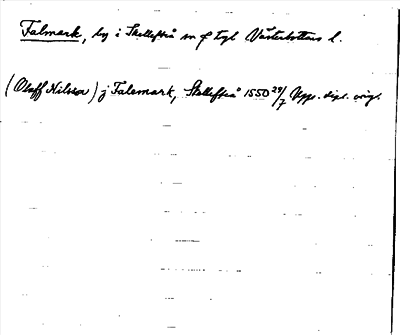 Falmark, by i Skellefteå sn o tgl Västerbottens l.
(Oloff Nilsson) j Falemark, Skellefteå 1550 29/7 Upps. dipl. orig.